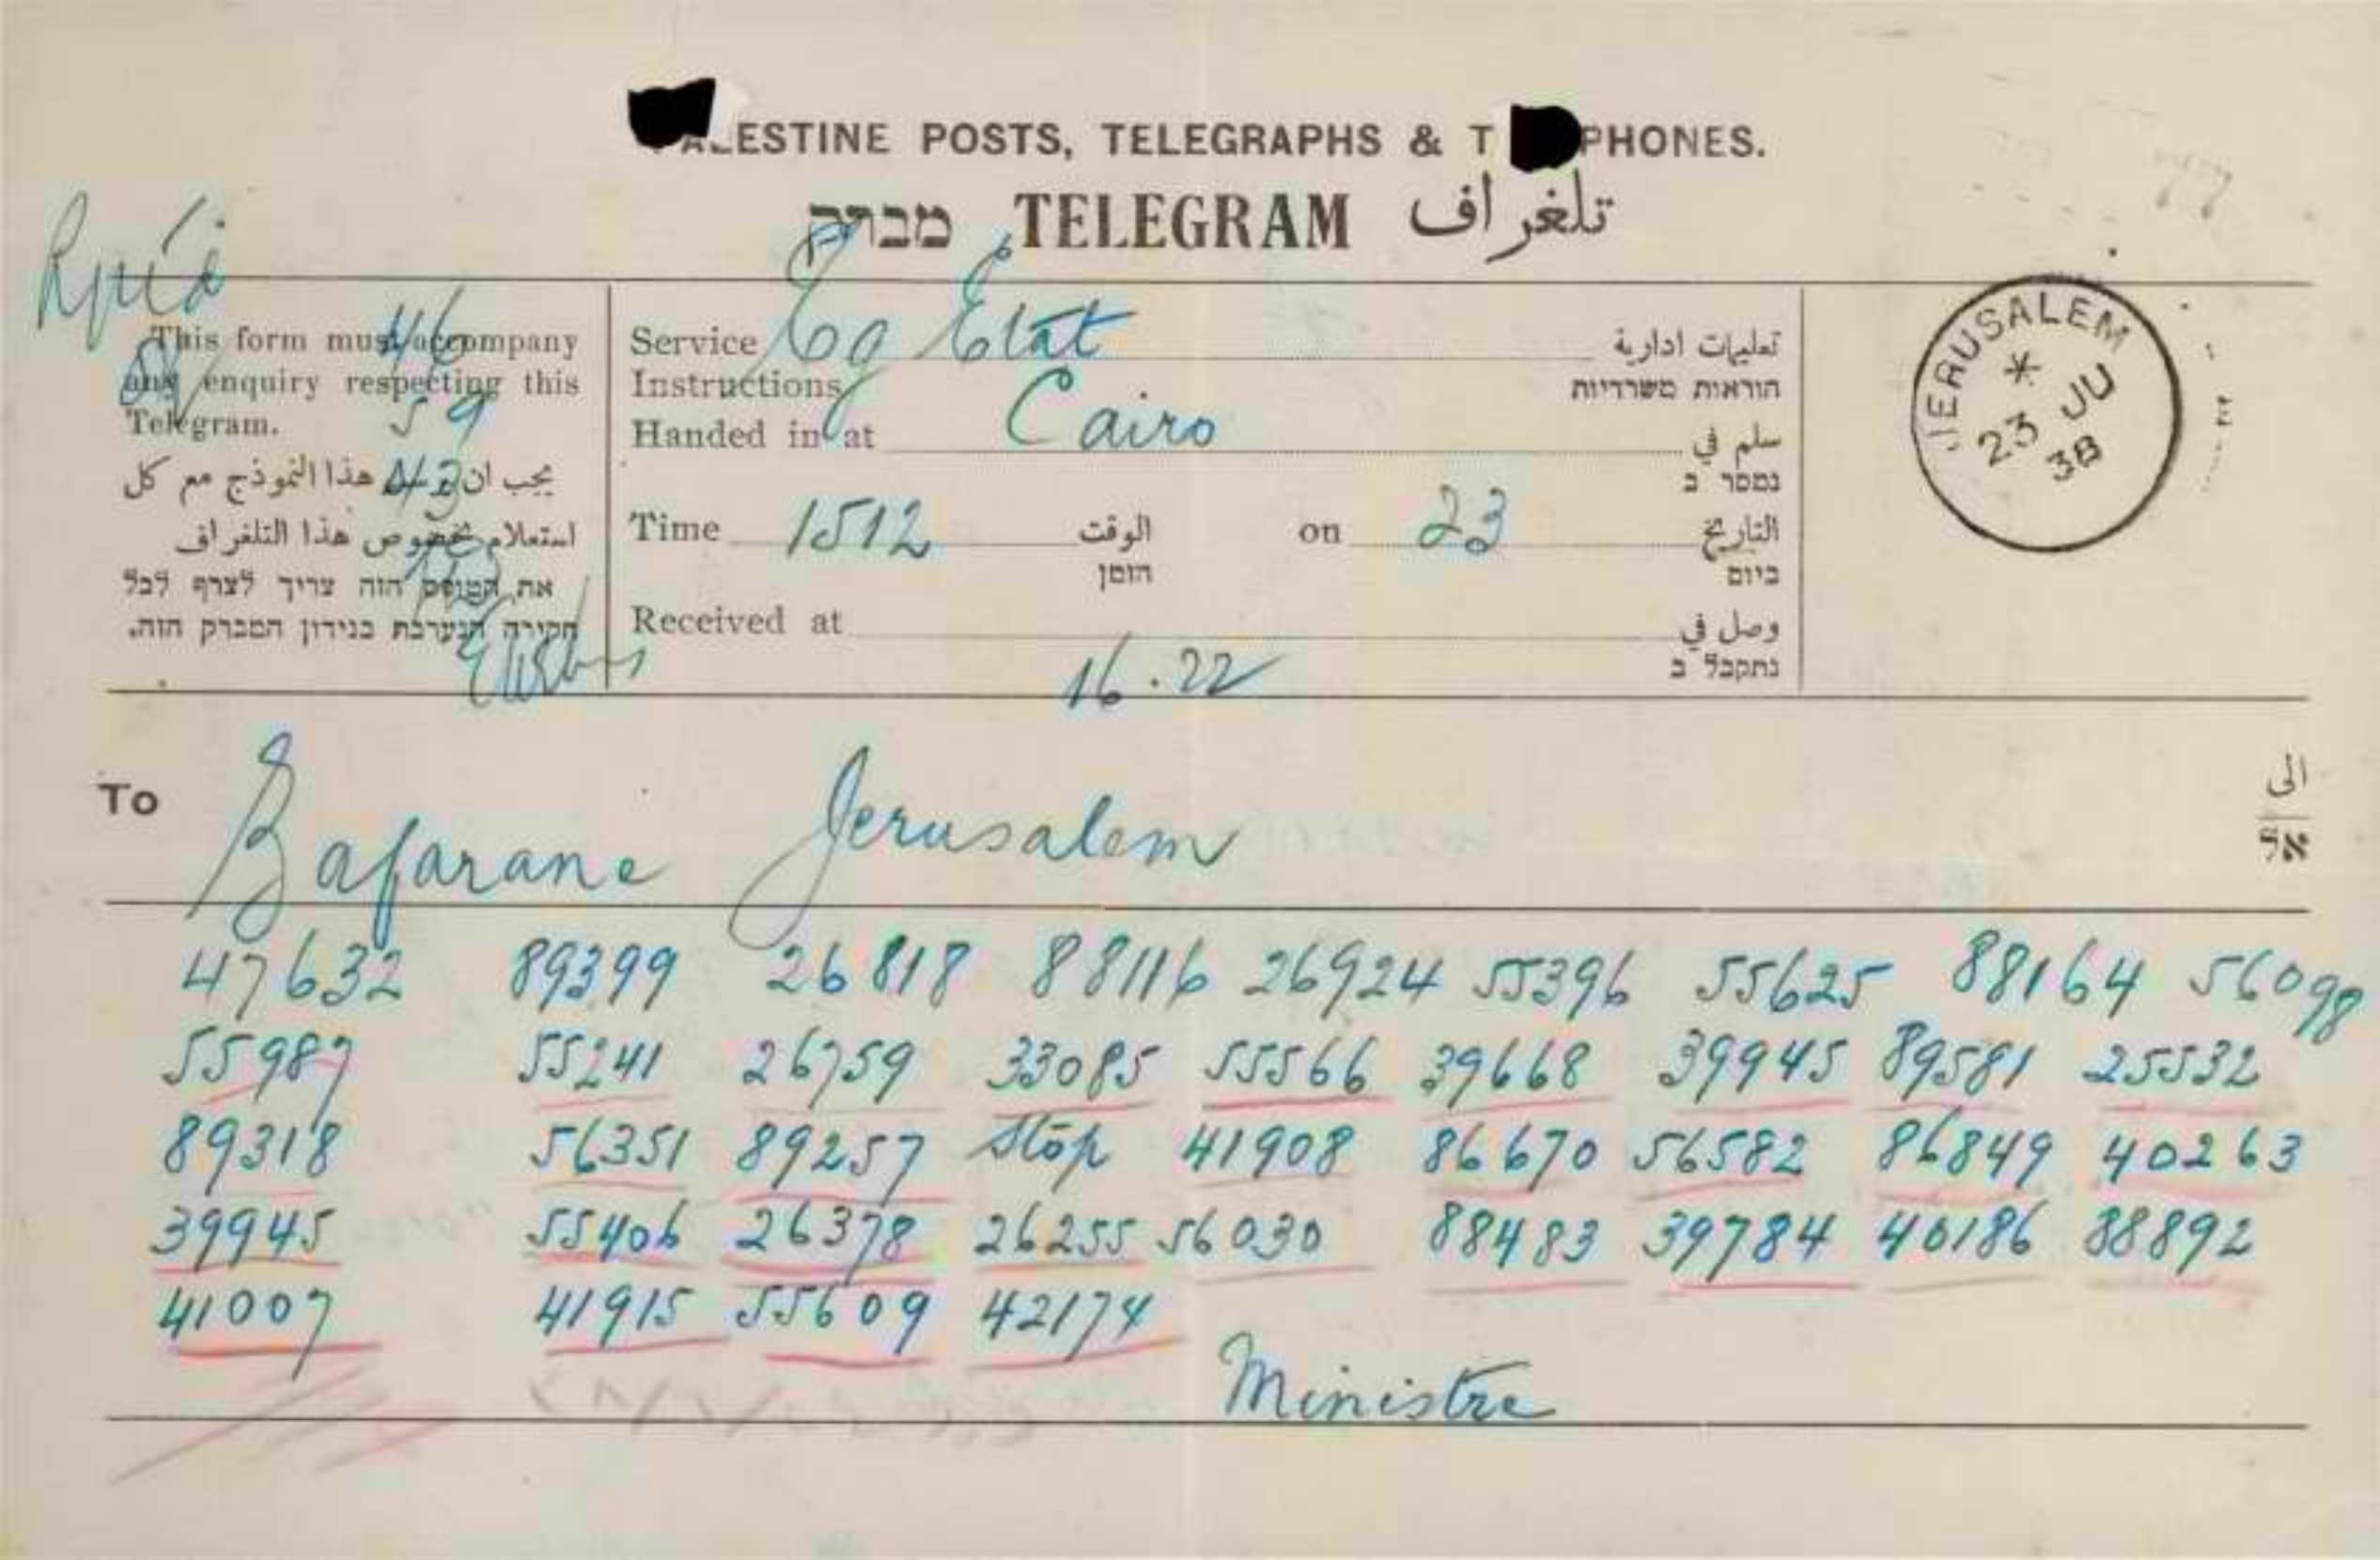 PALESTINE POSTS, TELEGRAPHS & T PHONES.
מברק TELEGRAM تلغراف
This form must accompany
any enquiry respecting this
Telegram.
46
59
يجب ان هذا النموذج مع كل
استعلام بخصوص هذا التلغراف
את הטופס הזה צריך לצרף לכל
חקירה הנערכת בנידון המברק הזה.
Service Eg Etat تعليمات ادارية
Instructions הוראות משרדיות
Handed in at Cairo سلم في
נמסר ב
Time 1512 الوقت on 23 التاريخ
הזמן ביום
Received at وصل في
16.22 נתקבל ב
JERUSALEM
*
23 JU
38
To Bafarane Jerusalem الى
אל
47632 89399 26818 88116 26924 55396 55625 88164 56098
55987 55241 26759 33085 55566 39668 39945 89581 25532
89318 56351 89257 Stop 41908 86670 56582 86849 40263
39945 55406 26378 26255 56030 88483 39784 40186 88892
41007 41915 55609 42174
Ministre